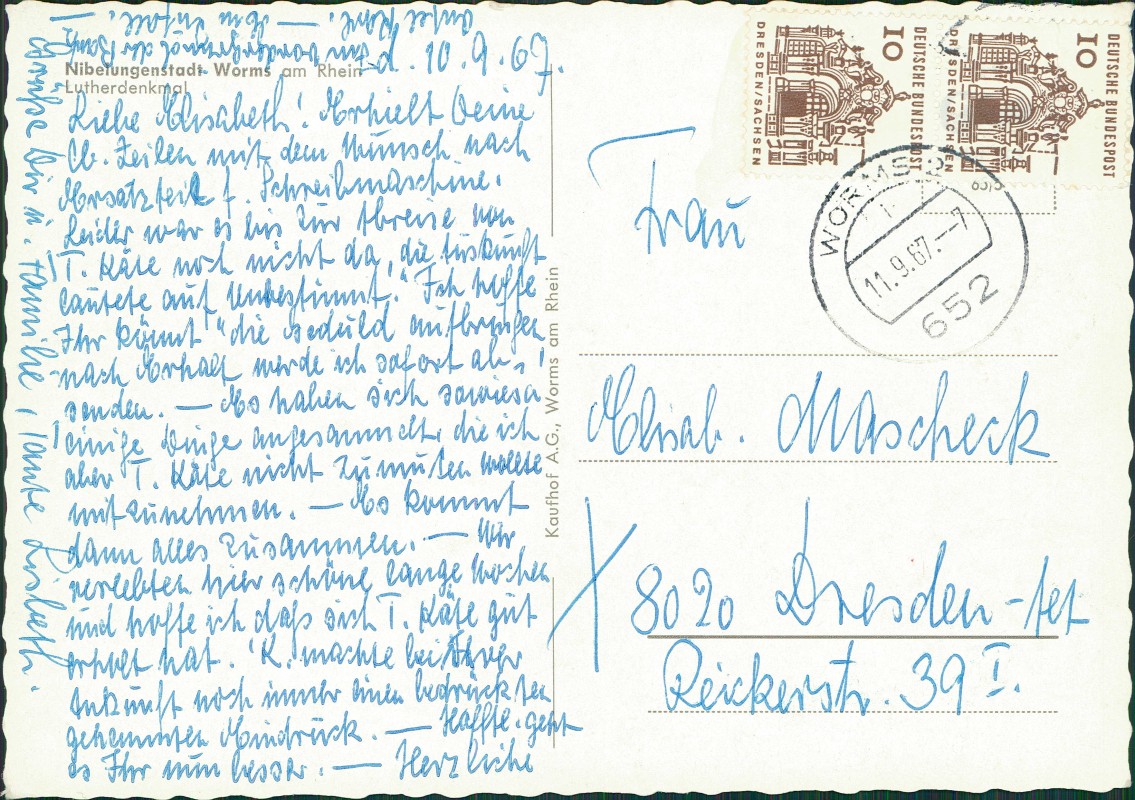 Nibelungenstadt Worms am Rhein
Lutherdenkmal
d. 10.9.67.
Liebe Elisabeth! Erhielt Deine
lb. Zeilen mit dem Wunsch nach
Ersatzteil f. Schreibmaschine.
Leider war es bis zur Abreise von
T. Käte noch nicht da, die Auskunft
lautete auf "Unbestimmt." Ich hoffe
Ihr könnt die Geduld aufbringen
nach Erhalt werde ich sofort ab-
senden. — Es haben sich sowieso
einige Dinge angesammelt, die ich
aber T. Käte nicht zumuten wollte
mitzunehmen. — Es kommt
dann alles zusammen. — Wir
verlebten hier schöne lange Wochen
und hoffe ich daß sich T. Käte gut
erholt hat. K. machte bei Ihrer
Ankunft noch immer einen bedrückten
gehemmten Eindruck. — Hofftl. geht
es Ihr nun besser. — Herzliche
Grüße Dir u. Familie, Tante Lisbeth.
Kaufhof A.G., Worms am Rhein
DEUTSCHE BUNDESPOST
10
DRESDEN/SACHSEN
DEUTSCHE BUNDESPOST
10
DRESDEN/SACHSEN
WORMS 2
11.9.67.–7
652
Frau
Elisab. Mascheck
X 8020 Dresden-
Reickerstr. 39 I.